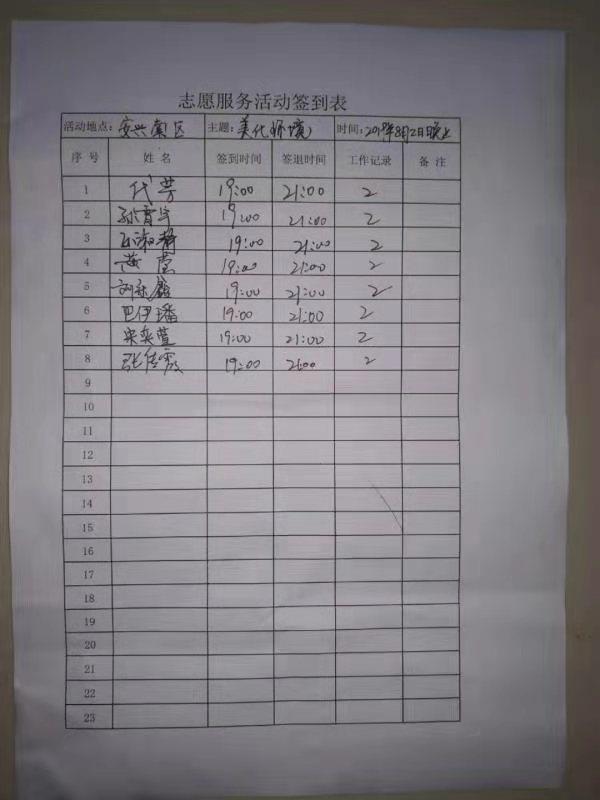 志愿服务活动签到表
活动地点: 安兴南区 主题: 美化环境 时间: 2019年8月2日晚上
序号 姓名 签到时间 签退时间 工作记录 备注
1 代芳 19:00 21:00 2
2 19:00 21:00 2
3 19:00 21:00 2
4 19:00 21:00 2
5 19:00 21:00 2
6 巴伊璠 19:00 21:00 2
7 宋奕萱 19:00 21:00 2
8 19:00 21:00 2
9
10
11
12
13
14
15
16
17
18
19
20
21
22
23